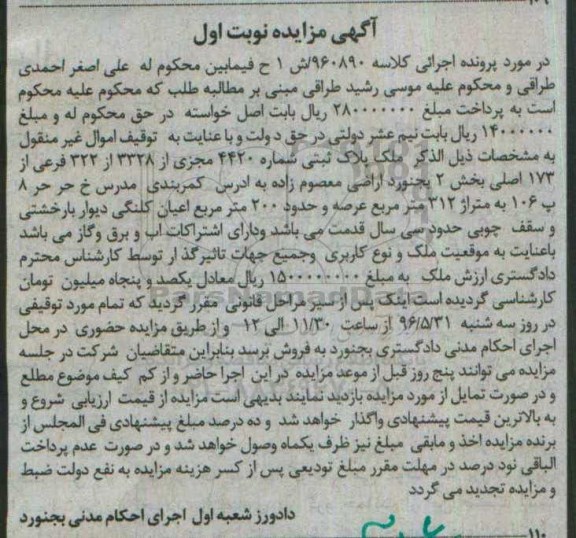 آگهی مزایده نوبت اول
در مورد پرونده اجرائی کلاسه ۹۶۰۸۹۰/ش ۱ ح فیمابین محکوم له علی اصغر احمدی
طراقی و محکوم علیه موسی رشید طراقی مبنی بر مطالبه طلب که محکوم علیه محکوم
است به پرداخت مبلغ ۲۸۰۰۰۰۰۰۰ ریال بابت اصل خواسته در حق محکوم له و مبلغ
۱۴۰۰۰۰۰۰ ریال بابت نیم عشر دولتی در حق دولت و با عنایت به توقیف اموال غیر منقول
به مشخصات ذیل الذکر ملک پلاک ثبتی شماره ۴۴۲۰ مجزی از ۳۳۲۸ از ۳۲۲ فرعی از
۱۷۳ اصلی بخش ۲ بجنورد اراضی معصوم زاده به ادرس کمربندی مدرس خ حر حر ۸
پ ۱۰۶ به متراژ ۳۱۲ متر مربع عرصه و حدود ۲۰۰ متر مربع اعیان کلنگی دیوار بارخشتی
و سقف چوبی حدود سی سال قدمت می باشد ودارای اشتراکات اب و برق وگاز می باشد
باعنایت به موقعیت ملک و نوع کاربری وجمیع جهات تاثیرگذ ار توسط کارشناس محترم
دادگستری ارزش ملک به مبلغ ۱۵۰۰۰۰۰۰۰۰ ریال معادل یکصد و پنجاه میلیون تومان
کارشناسی گردیده است اینک پس از سیر مراحل قانونی مقرر گردید که تمام مورد توقیفی
در روز سه شنبه ۹۶/۵/۳۱ از ساعت ۱۱/۳۰ الی ۱۲ و از طریق مزایده حضوری در محل
اجرای احکام مدنی دادگستری بجنورد به فروش برسد بنابراین متقاضیان شرکت در جلسه
مزایده می توانند پنج روز قبل از موعد مزایده در این اجرا حاضر و از کم کیف موضوع مطلع
و در صورت تمایل از مورد مزایده بازدید نمایند بدیهی است مزایده از قیمت ارزیابی شروع و
به بالاترین قیمت پیشنهادی واگذار خواهد شد و ده درصد مبلغ پیشنهادی فی المجلس از
برنده مزایده اخذ و مابقی مبلغ نیز ظرف یکماه وصول خواهد شد و در صورت عدم پرداخت
الباقی نود درصد در مهلت مقرر مبلغ تودیعی پس از کسر هزینه مزایده به نفع دولت ضبط
و مزایده تجدید می گردد
دادورز شعبه اول اجرای احکام مدنی بجنورد
۱۱۰